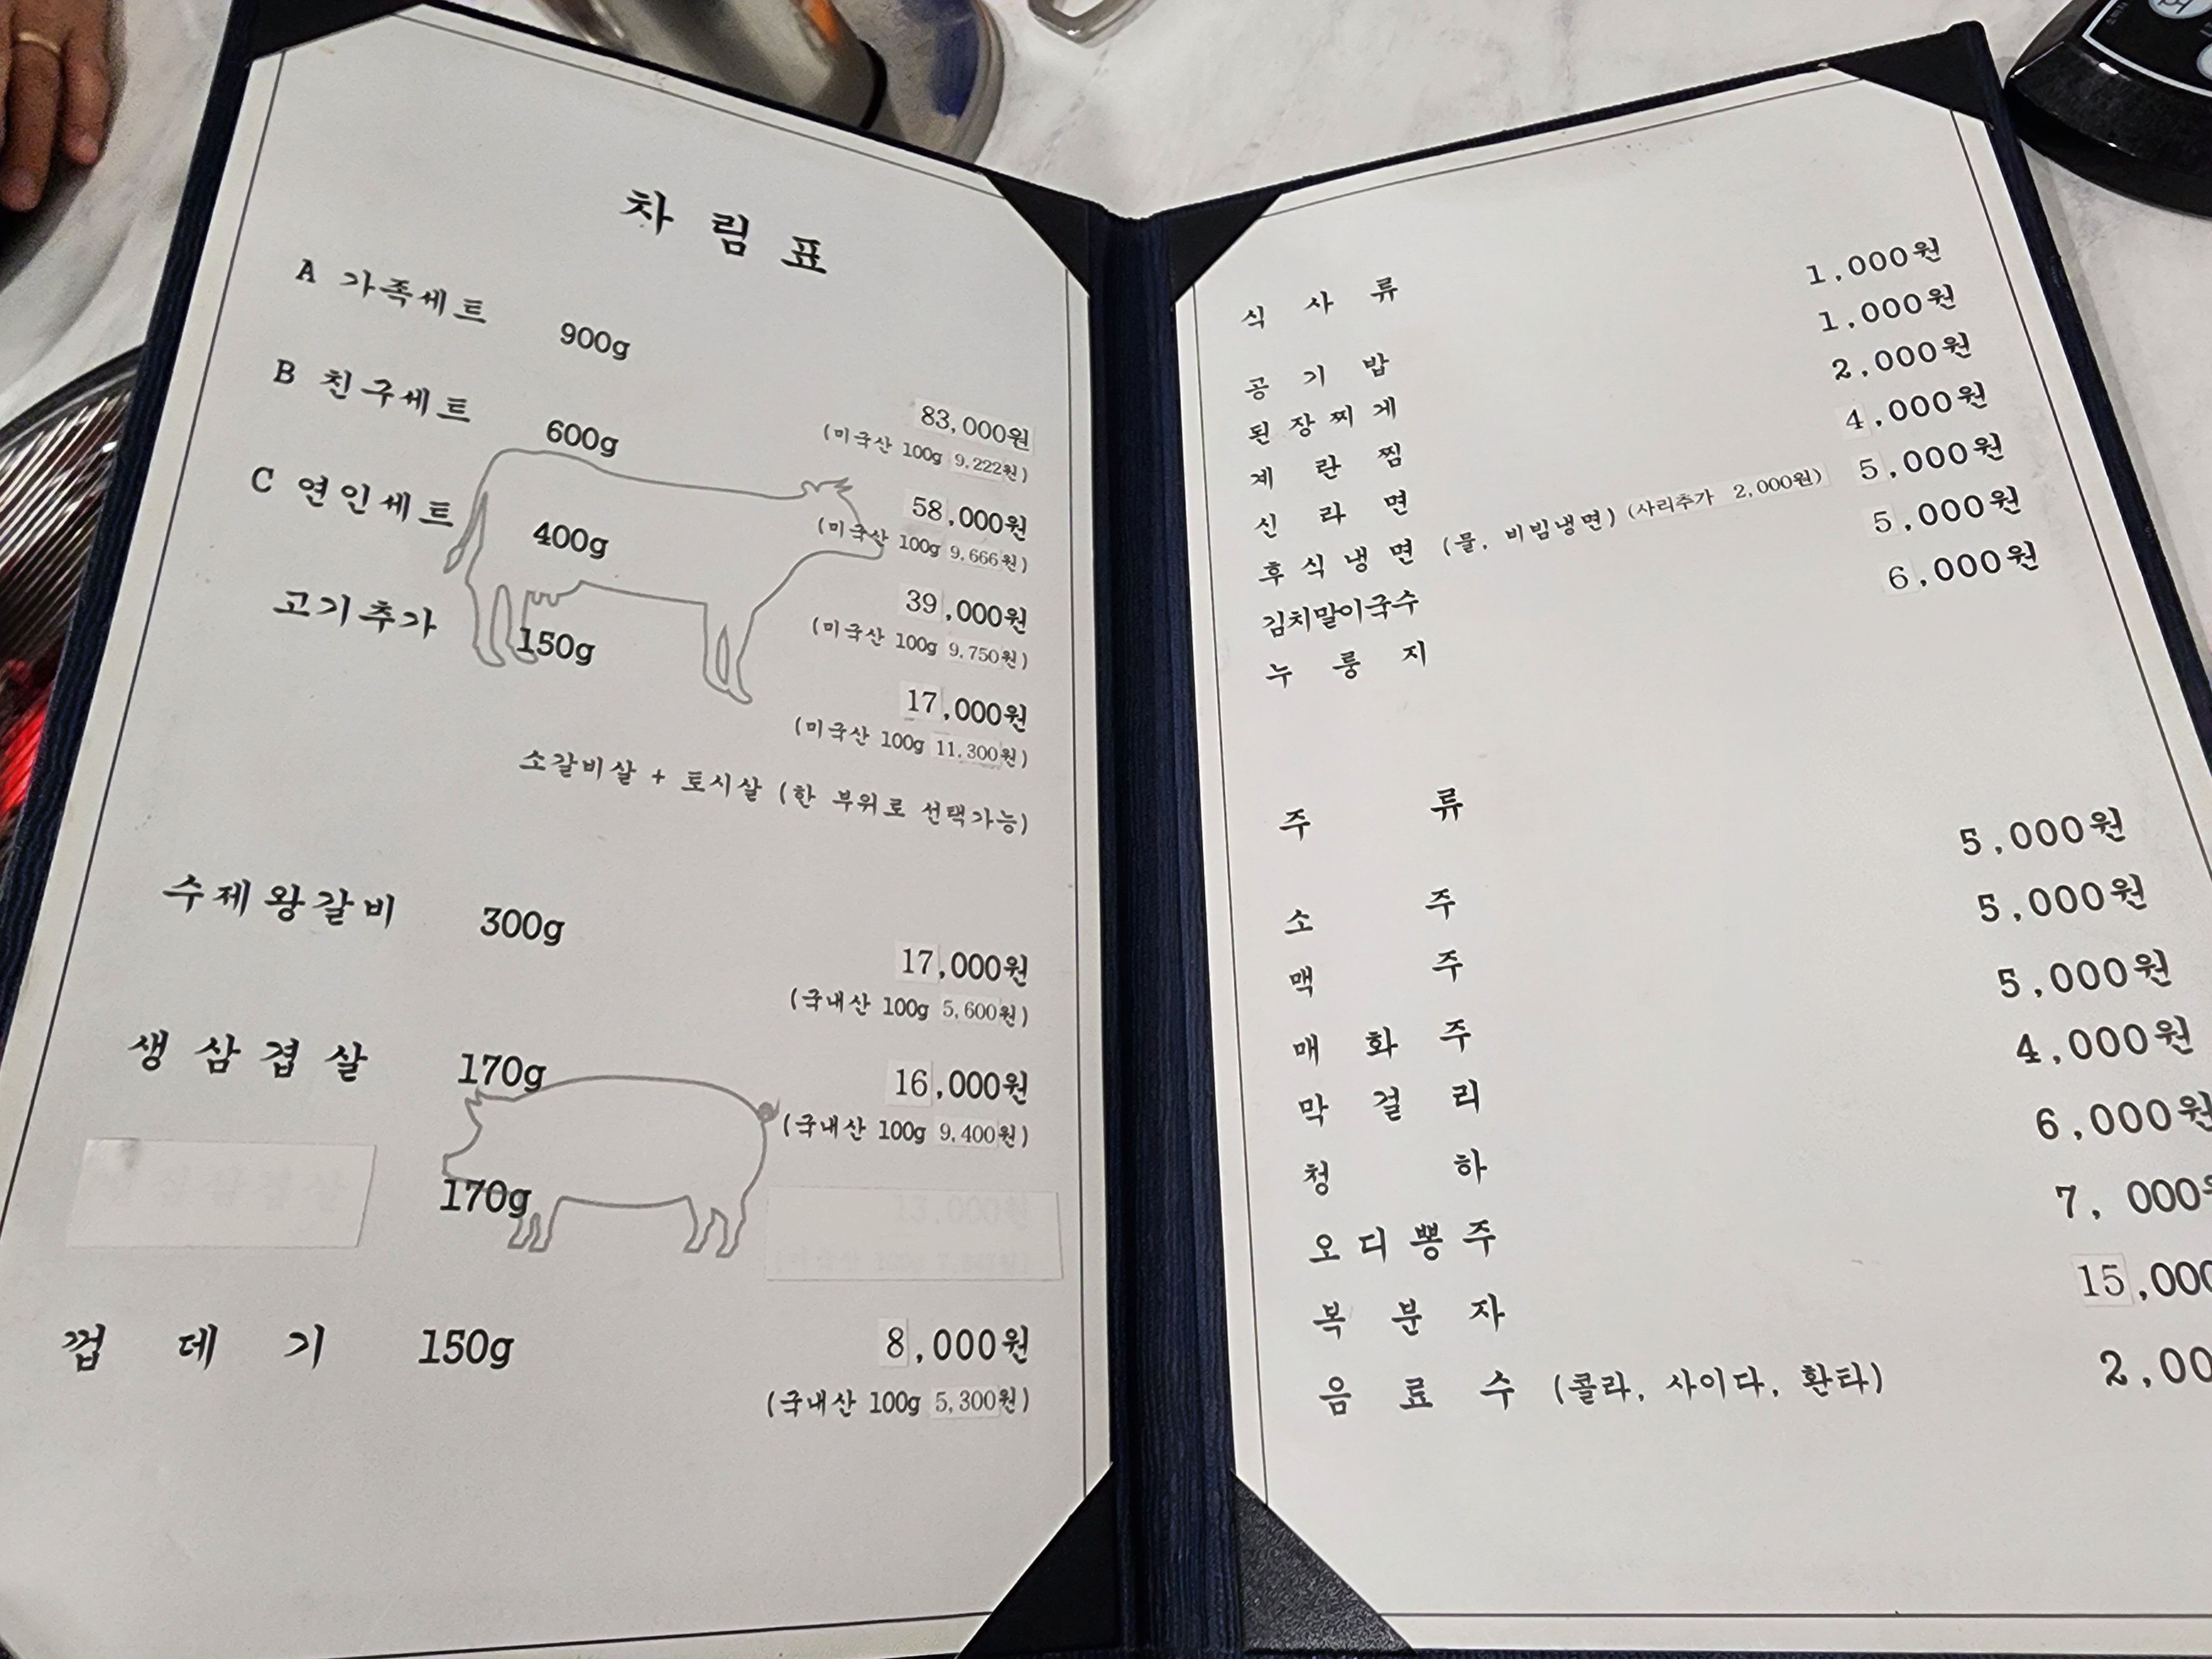 차 림 표
A 가족세트 900g 83,000원
(미국산 100g 9,222원)
B 친구세트 600g 58,000원
(미국산 100g 9,666원)
C 연인세트 400g 39,000원
(미국산 100g 9,750원)
고기추가 150g 17,000원
(미국산 100g 11,300원)
소갈비살 + 토시살 (한 부위로 선택가능)
수제왕갈비 300g 17,000원
(국내산 100g 5,600원)
생 삼 겹 살 170g 16,000원
(국내산 100g 9,400원)
170g
껍 데 기 150g 8,000원
(국내산 100g 5,300원)
식 사 류
공 기 밥 1,000원
된 장 찌 게 1,000원
계 란 찜 2,000원
신 라 면 4,000원
후 식 냉 면 (물, 비빔냉면) (사리추가 2,000원) 5,000원
김치말이국수 5,000원
누 룽 지 6,000원
주 류
소 주 5,000원
맥 주 5,000원
매 화 주 5,000원
막 걸 리 4,000원
청 하 6,000원
오 디 뽕 주 7, 000
복 분 자 15,000
음 료 수 (콜라, 사이다, 환타) 2,00